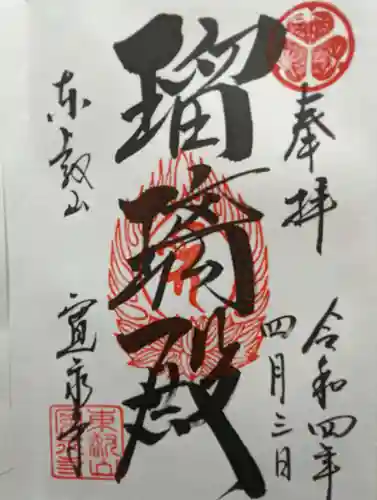 奉拝
令和四年
四月三日
瑠璃殿
東叡山
寛永寺